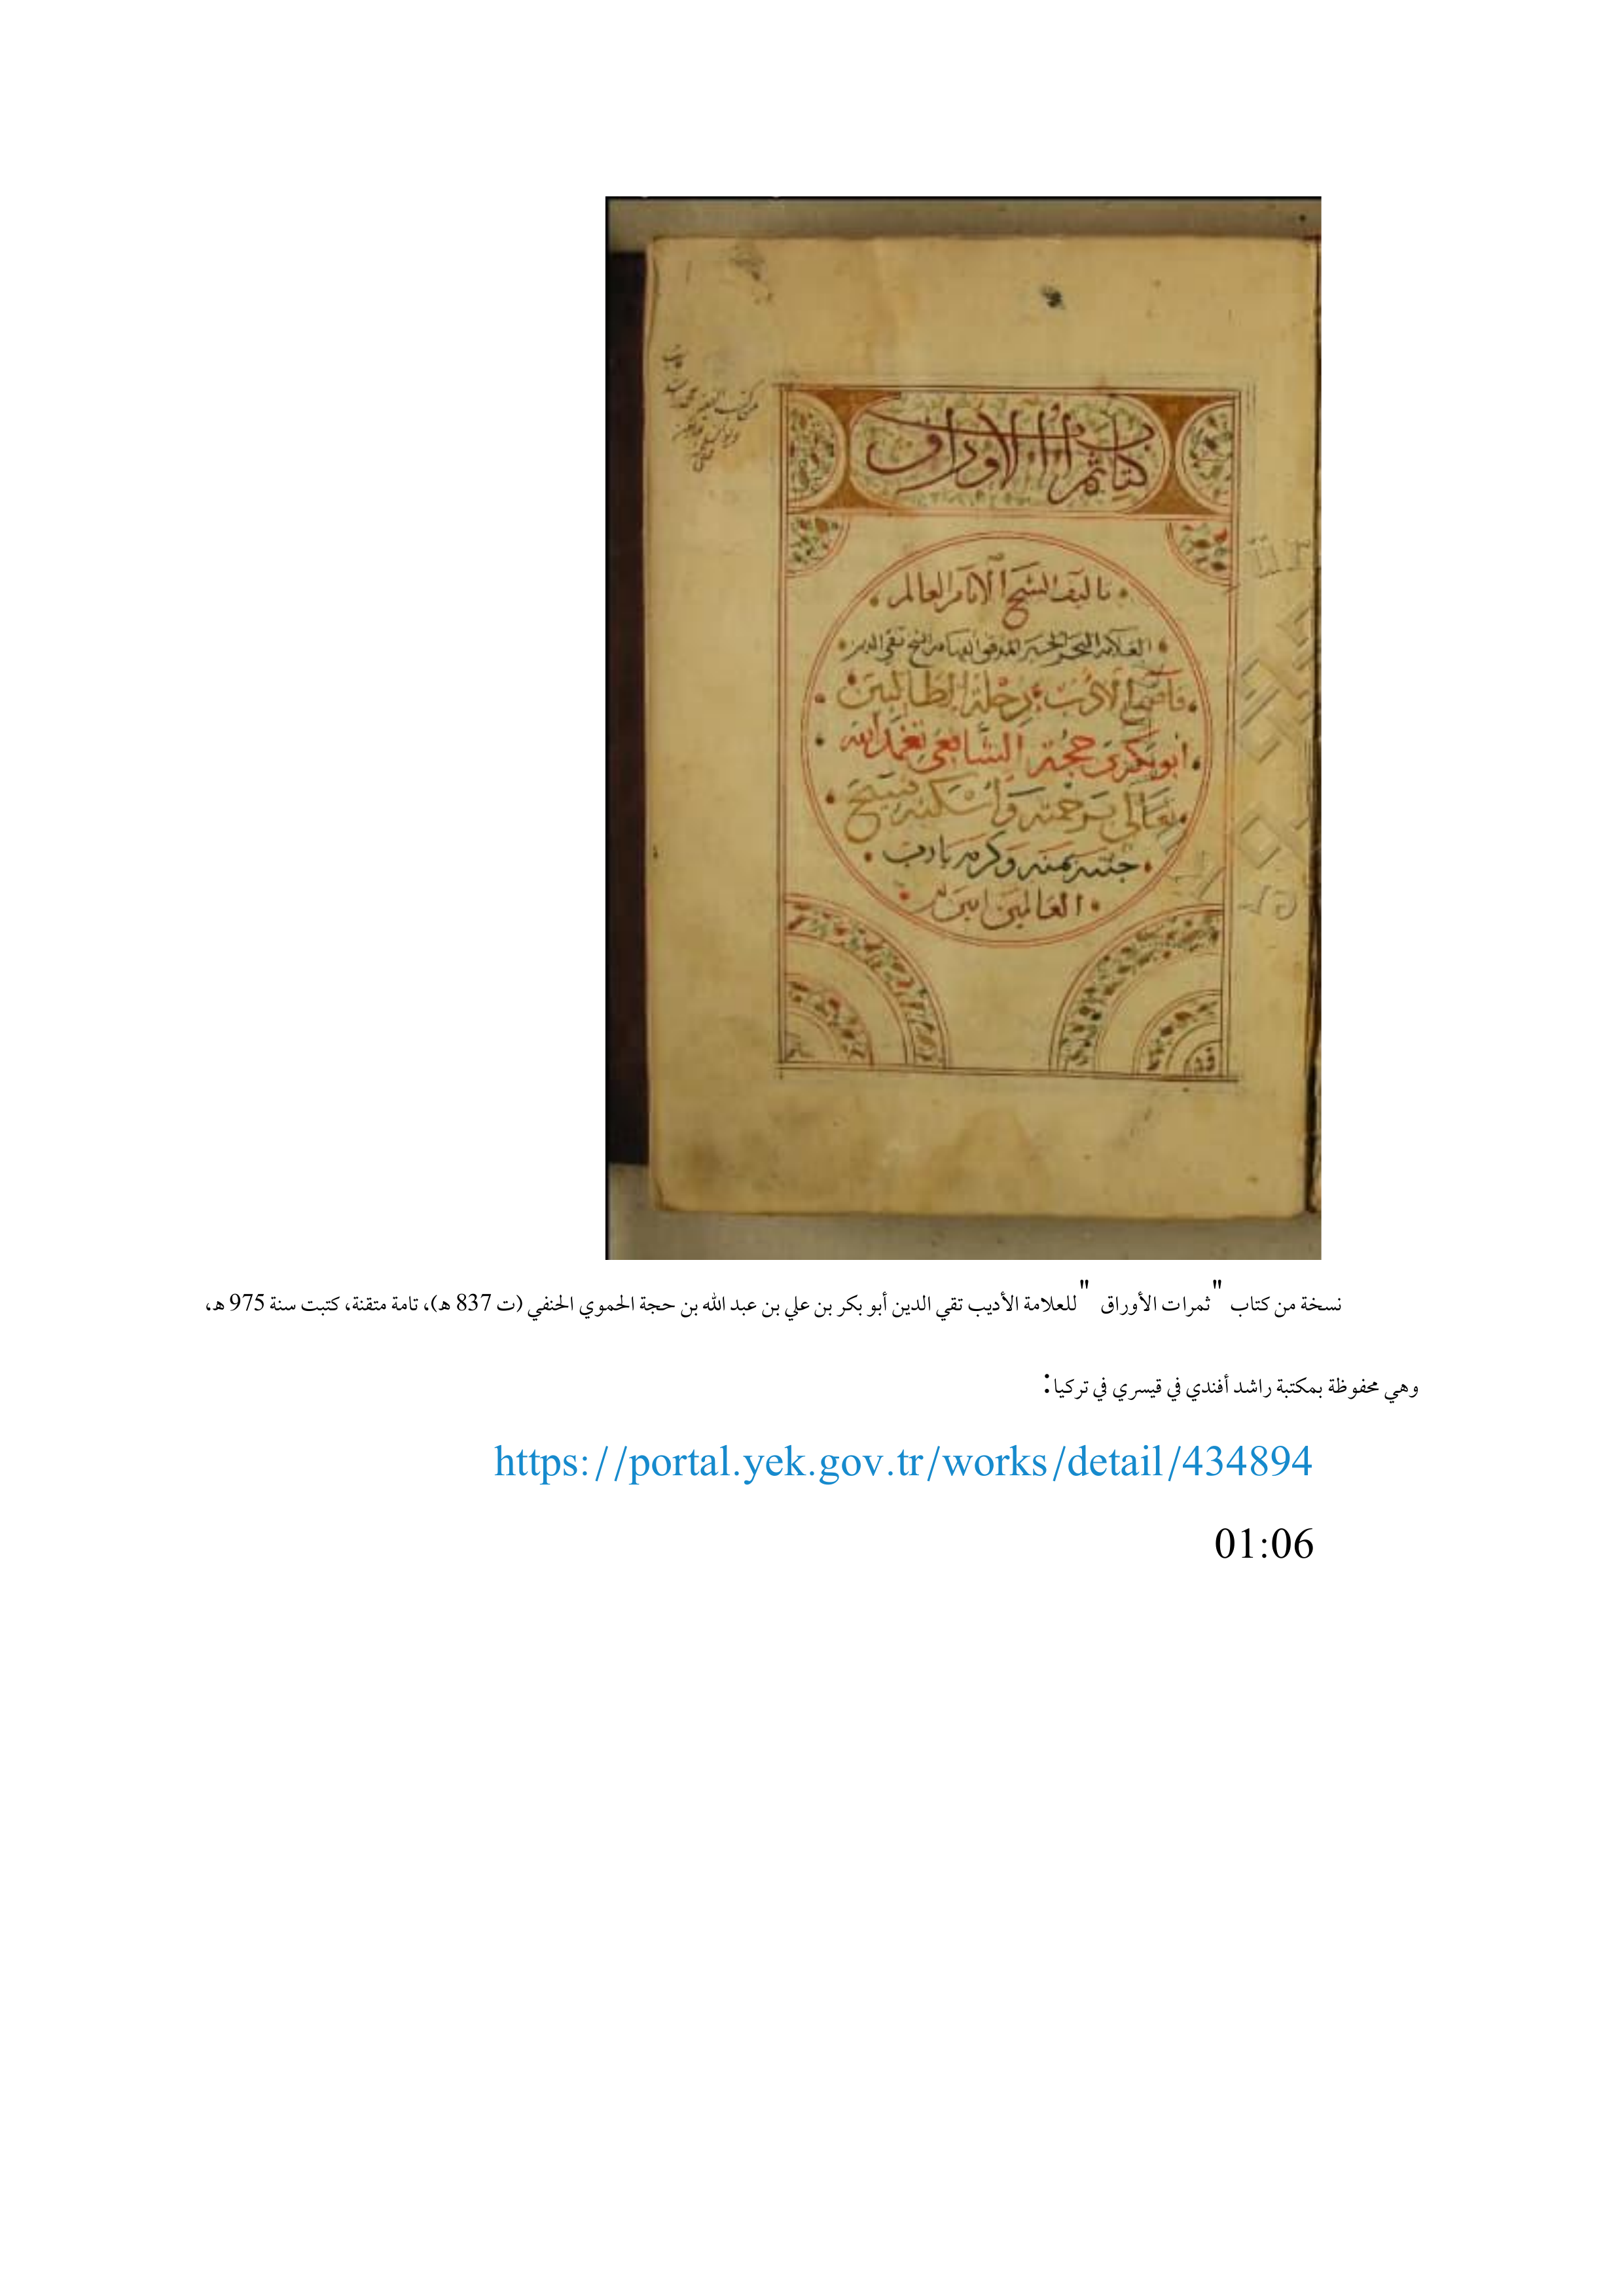 كتاب ثمرات الاوراق
تاليف الشيخ الامام العالم
العلامة البحر الحبر الشيخ تقي الدين
الادب رحلة الطالبين
ابو بكر بن حجة الشافعي تغمده الله
تعالى برحمته واسكنه فسيح
جنته بمنه وكرمه يا رب
العالمين امين
نسخة من كتاب "ثمرات الأوراق" للعلامة الأديب تقي الدين أبو بكر بن علي بن عبد الله بن حجة الحموي الحنفي (ت 837 هـ)، تامة متقنة، كتبت سنة 975 هـ،
وهي محفوظة بمكتبة راشد أفندي في قيسري في تركيا:
https://portal.yek.gov.tr/works/detail/434894
01:06